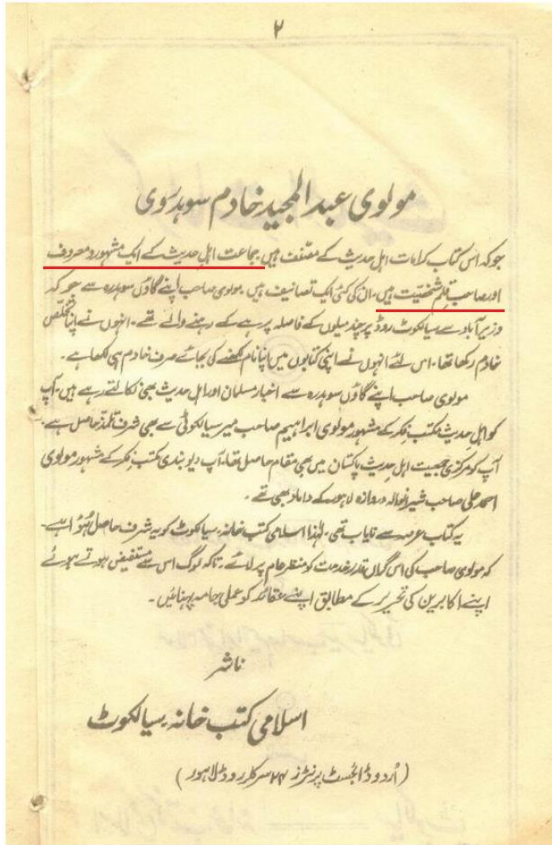 ۲
مولوی عبد المجید خادم سوہدروی
جو کہ اس کتاب کرامات اہل حدیث کے مصنف ہیں جماعت اہل حدیث کے ایک مشہور و معروف
اور صاحب قلم شخصیت ہیں۔ ان کی کئی ایک تصانیف ہیں۔ مولوی صاحب اپنے گاؤں سوہدرہ سے جو کہ
وزیر آباد سے سیالکوٹ روڈ پر چند میلوں کے فاصلہ پر ہے کے رہنے والے تھے۔ انہوں نے اپنا تخلص
خادم رکھا تھا۔ اس لئے انہوں نے اپنی کتابوں میں اپنا نام لکھنے کی بجائے صرف خادم ہی لکھا ہے۔
مولوی صاحب اپنے گاؤں سوہدرہ سے اخبار مسلمان اور اہل حدیث بھی نکالتے رہے ہیں۔ آپ
کو اہل حدیث مکتب فکر کے مشہور مولوی ابراہیم صاحب میر سیالکوٹی سے بھی شرف تلمذ حاصل ہے۔
آپ کو مرکزی جمعیت اہل حدیث پاکستان میں بھی مقام حاصل تھا۔ آپ دیوبندی مکتب فکر کے مشہور مولوی
احمد علی صاحب شیرانوالہ دروازہ لاہور کے داماد بھی تھے۔
یہ کتاب عرصہ سے نایاب تھی۔ لہٰذا اسلامی کتب خانہ سیالکوٹ کو یہ شرف حاصل ہوا ہے۔
کہ مولوی صاحب کی اس گراں قدر خدمت کو منظر عام پر لائے۔ تاکہ لوگ اس سے مستفیض ہوتے ہوئے
اپنے اکابرین کی تحریر کے مطابق اپنے عقائد کو عملی جامہ پہنائیں۔
ناشر
اسلامی کتب خانہ۔ سیالکوٹ
(اُردو ڈائجسٹ پرنٹرز ۲۴ سرکلر روڈ لاہور)